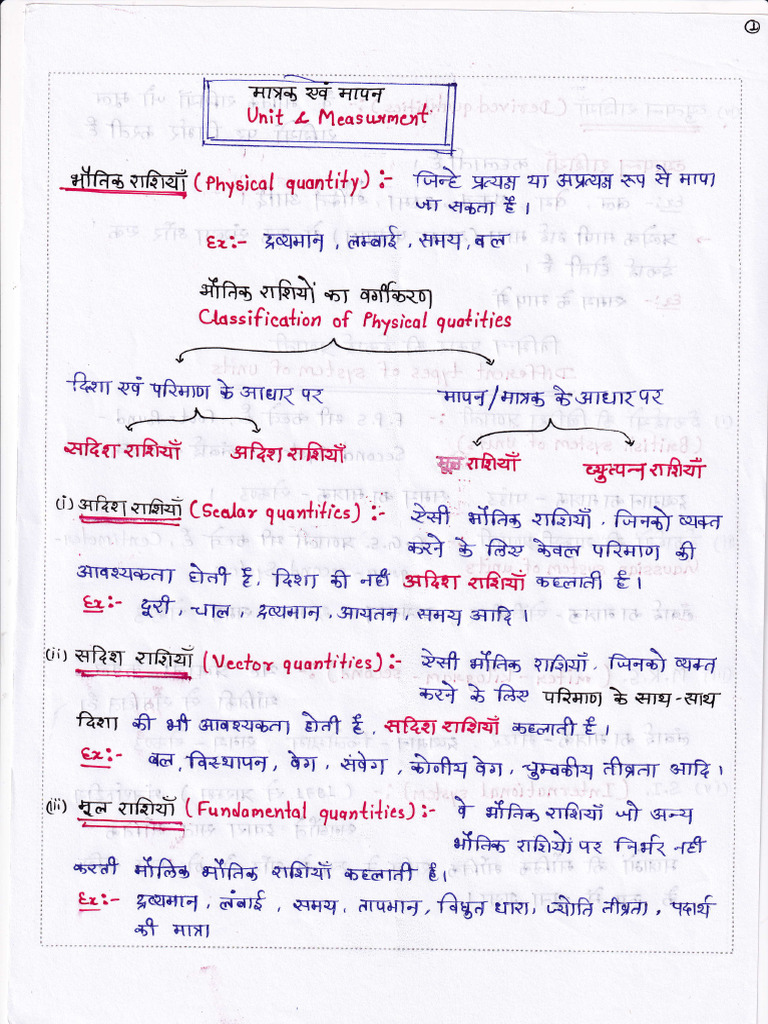 1
मात्रक एवं मापन
Unit & Measurment
भौतिक राशियाँ (Physical quantity) :- जिन्हे प्रत्यक्ष या अप्रत्यक्ष रूप से मापा
जा सकता है।
Ex:- द्रव्यमान, लम्बाई, समय, बल
भौतिक राशियों का वर्गीकरण
Classification of Physical quatities
दिशा एवं परिमाण के आधार पर मापन/मात्रक के आधार पर
सदिश राशियाँ अदिश राशियाँ मूल राशियाँ व्युत्पन्न राशियाँ
(i) अदिश राशियाँ (Scalar quantities) :- ऐसी भौतिक राशियाँ, जिनको व्यक्त
करने के लिए केवल परिमाण की
आवश्यकता होती है, दिशा की नहीं अदिश राशियाँ कहलाती हैं।
Ex:- दूरी, चाल, द्रव्यमान, आयतन, समय आदि।
(ii) सदिश राशियाँ (Vector quantities) :- ऐसी भौतिक राशियाँ, जिनको व्यक्त
करने के लिए परिमाण के साथ-साथ
दिशा की भी आवश्यकता होती हैं, सदिश राशियाँ कहलाती हैं।
Ex:- बल, विस्थापन, वेग, संवेग, कोणीय वेग, चुम्बकीय तीव्रता आदि।
(iii) मूल राशियाँ (Fundamental quantities) :- वे भौतिक राशियाँ जो अन्य
भौतिक राशियों पर निर्भर नही
करती मौलिक भौतिक राशियाँ कहलाती हैं।
Ex:- द्रव्यमान, लंबाई, समय, तापमान, विधुत धारा, ज्योति तीव्रता, पदार्थ
की मात्रा